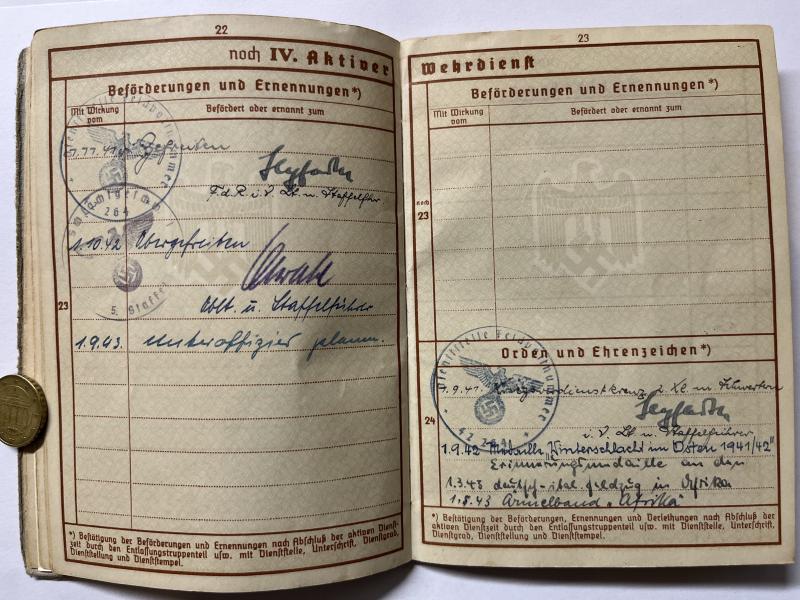 22
noch IV. Aktiver
Beförderungen und Ernennungen*)
Mit Wirkung vom
Befördert oder ernannt zum
Dienststelle Feldpostnummer
Gefreiten
Seyfarth
F.d.R. i.V. Lt. u. Staffelfhr
264
1.10.42 Obergefreiten
Oblt. u. Staffelführer
5. Staffel
23
1.9.43. Unteroffizier planm.
*) Bestätigung der Beförderungen und Ernennungen nach Abschluß der aktiven Dienst-
zeit durch den Entlassungstruppenteil usw. mit Dienststelle, Unterschrift, Dienstgrad,
Dienststellung und Dienststempel.
23
Wehrdienst
Beförderungen und Ernennungen*)
Mit Wirkung vom
Befördert oder ernannt zum
noch
23
Orden und Ehrenzeichen*)
Dienststelle Feldpostnummer
1.9.41. Kriegsverdienstkreuz 2. Kl. m Schwertern
Seyfarth
24
i.V. Lt. u. Staffelführer
1.9.42 Medaille „Winterschlacht im Osten 1941/42"
Erinnerungsmedaille an den
1.3.43 deutsch-ital. Feldzug in Afrika
1.8.43 Ärmelband „Afrika"
*) Bestätigung der Beförderungen, Ernennungen und Verleihungen nach Abschluß der
aktiven Dienstzeit durch den Entlassungstruppenteil usw. mit Dienststelle, Unterschrift,
Dienstgrad, Dienststellung und Dienststempel.